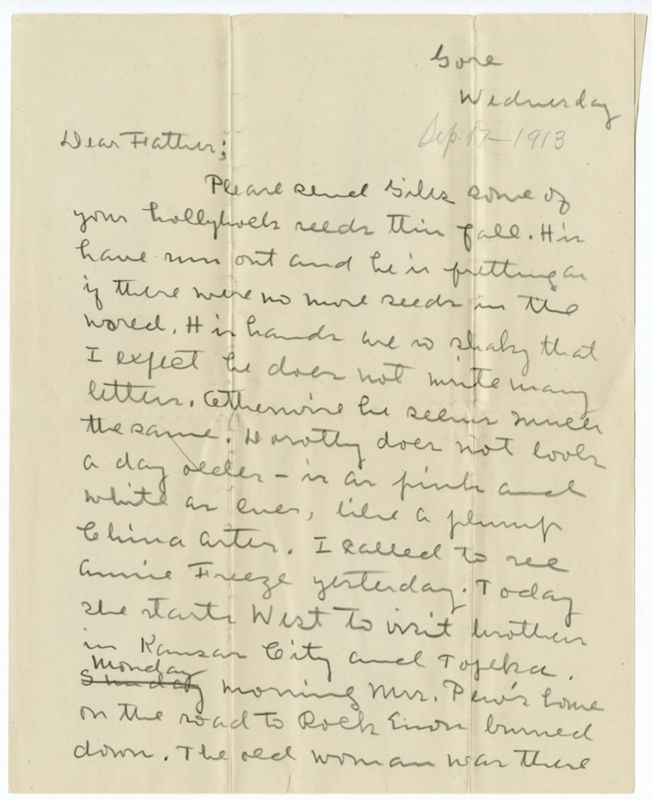 Gore
Wednesday
Sep. 17-1913
Dear Father;
Please send Giles some of
your hollyhock seeds this fall. His
have run out and he is fretting as
if there were no more seeds in the
world. His hands are so shaky that
I expect he does not write many
letters. Otherwise he seems much
the same. Dorothy does not look
a day older - is as pink and
white as ever, like a plump
China Aster. I called to see
Annie Freeze yesterday. Today
she starts West to visit brothers
in Kansas City and Topeka.
Monday
Sunday morning Mrs. Pew's home
on the road to Rock Enon burned
down. The old woman was there